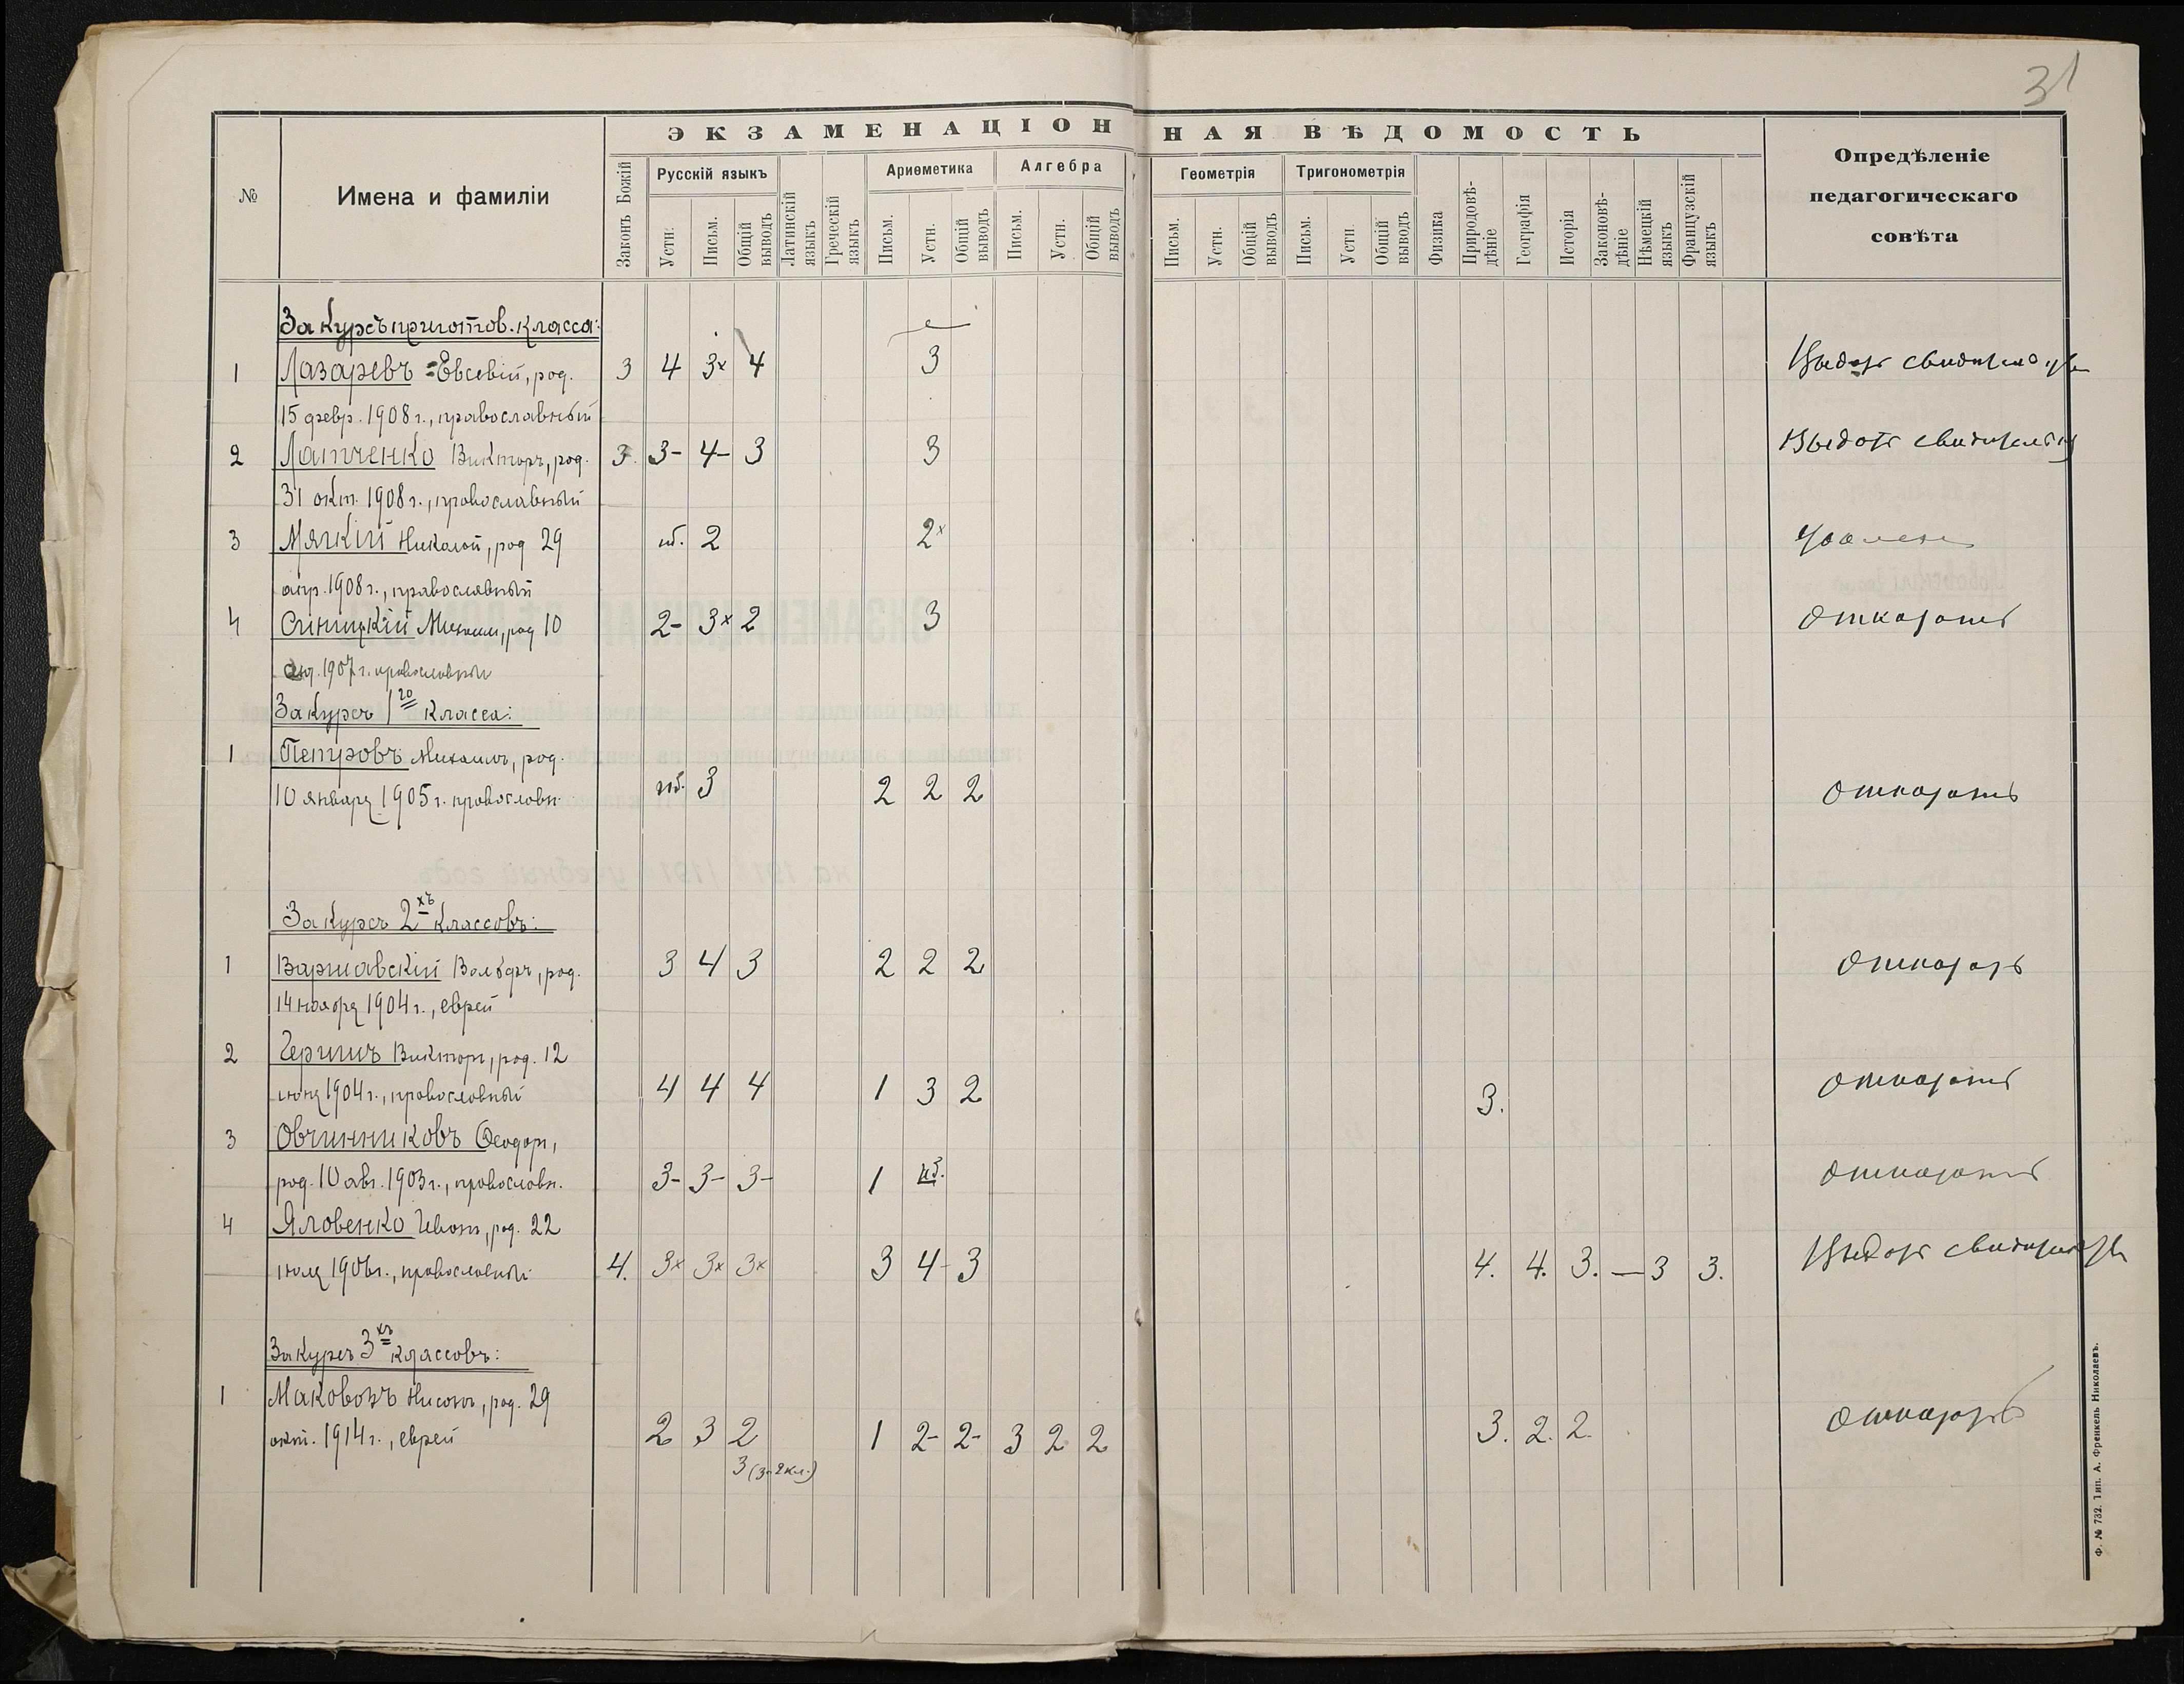 31
ЭКЗАМЕНАЦІОННАЯ ВѢДОМОСТЬ
№
Имена и фамиліи
Законъ Божій
Русскій языкъ
Устн.
Письм.
Общій выводъ
Латинскій языкъ
Греческій языкъ
Ариѳметика
Письм.
Устн.
Общій выводъ
Алгебра
Письм.
Устн.
Общій выводъ
Геометрія
Письм.
Устн.
Общій выводъ
Тригонометрія
Письм.
Устн.
Общій выводъ
Физика
Природовѣ-
дѣніе
Географія
Исторія
Законовѣ-
дѣніе
Нѣмецкій языкъ
Французскій языкъ
Опредѣленіе
педагогическаго
совѣта
За курсъ приготов. класса:
1 Лазаревъ Евсевій, род. 3 4 3× 4 3 Выдать свидѣтельство
15 февр. 1908 г., православный
2 Латченко Викторъ, род. 3. 3- 4- 3 3 Выдать свидѣтельство
31 окт. 1908 г., православный
3 Мягкій Николай, род 29 нб. 2 2× Уволенъ
апр. 1908 г., православный
4 Синицкій Михаилъ, род 10 2- 3× 2 3 Отказать
1907 г. православный
За курсъ 1го класса:
1 Петровъ Михаилъ, род.
10 января 1905 г. православн. нб. 3 2 2 2 Отказать
За курсъ 2хъ классовъ:
1 Варшавскій Вольфъ, род. 3 4 3 2 2 2 Отказать
14 ноября 1904 г., еврей
2 Викторъ, род. 12
іюня 1904 г., православный 4 4 4 1 3 2 3. Отказать
3 Овчинниковъ Ѳеодоръ,
род. 10 авг. 1903 г., православн. 3- 3- 3- 1 нб. Отказать
4 Яловенко Иванъ, род. 22
іюля 1906 г., православный 4. 3× 3× 3× 3 4- 3 4. 4. 3. — 3 3. Выдать свидѣтельство
За курсъ 3хъ классовъ:
1 Маковозъ Нисонъ, род. 29
окт. 1914 г., еврей 2 3 2 1 2- 2- 3 2 2 3. 2. 2. Отказать
3 (за 2 кл.)
Ф. № 732. Тип. А. Френкель Николаевъ.